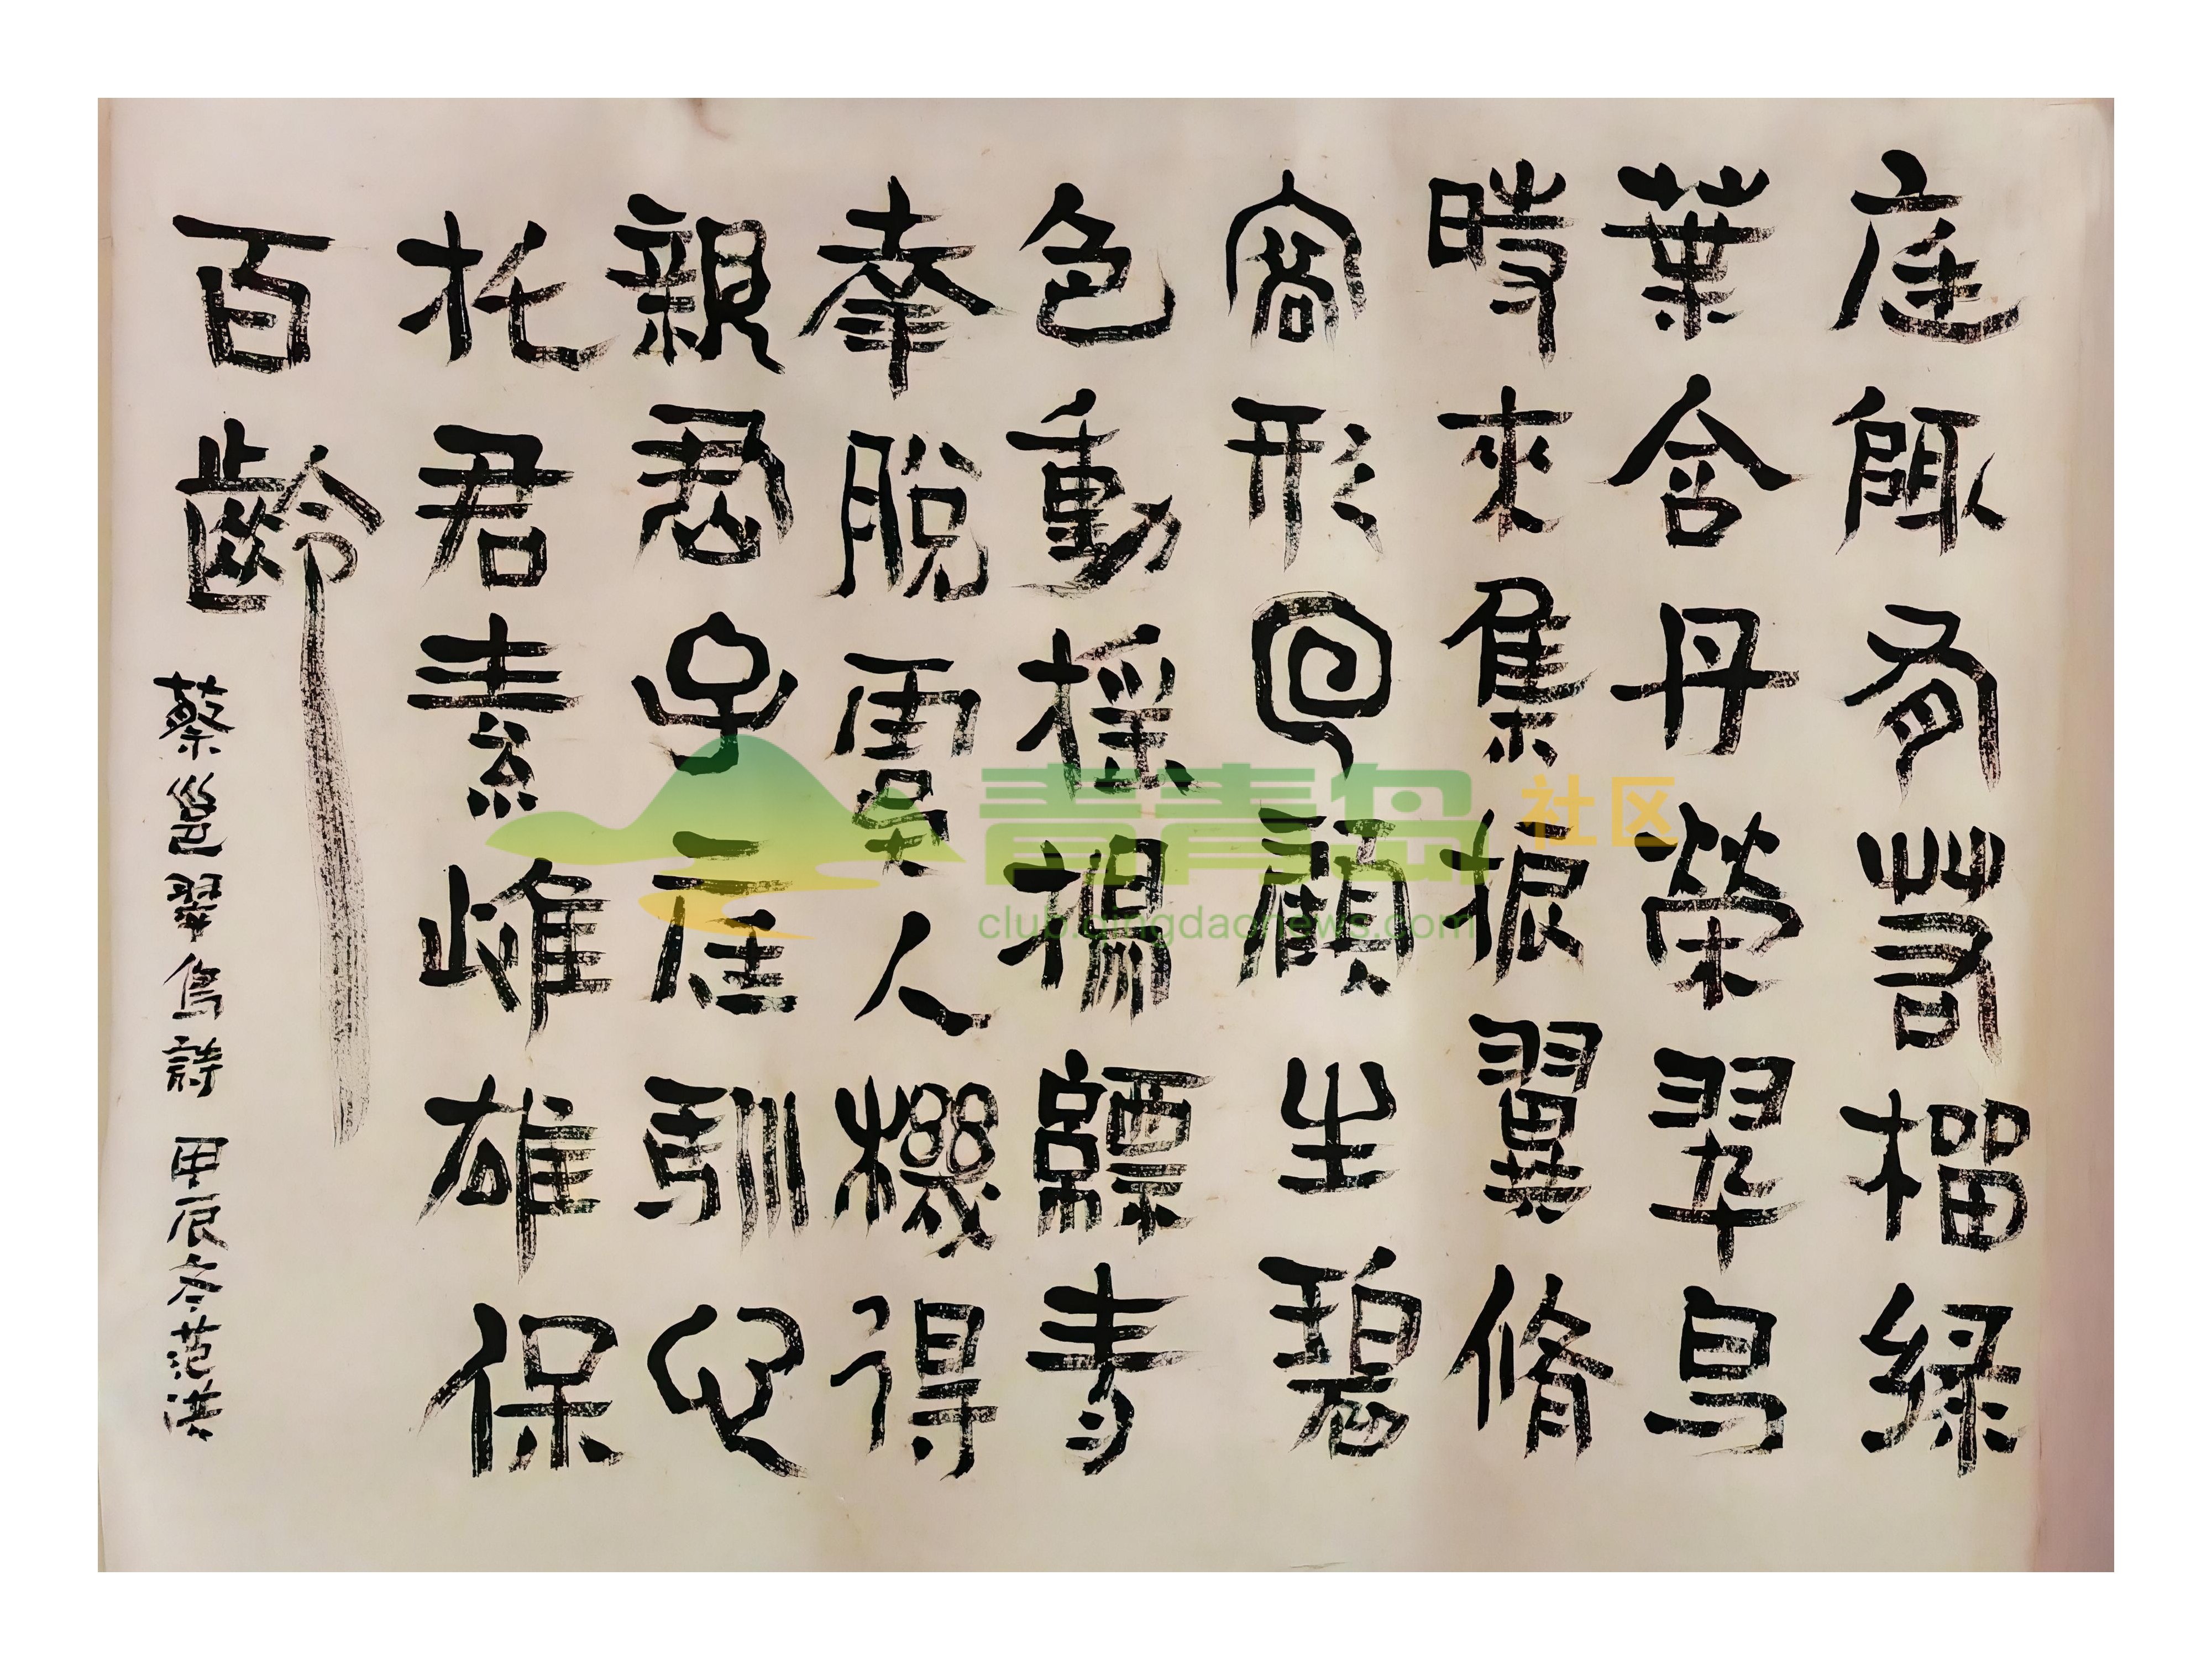 庭陬有若榴緑
葉含丹榮翠鳥
時來集振翼脩
容形回顧生碧
色動摇揚縹青
幸脫虞人機得
親君子庭馴心
托君素雌雄保
百齡
蔡邕翠鳥詩 甲辰冬范
青青岛 社区
club.qingdaonews.com